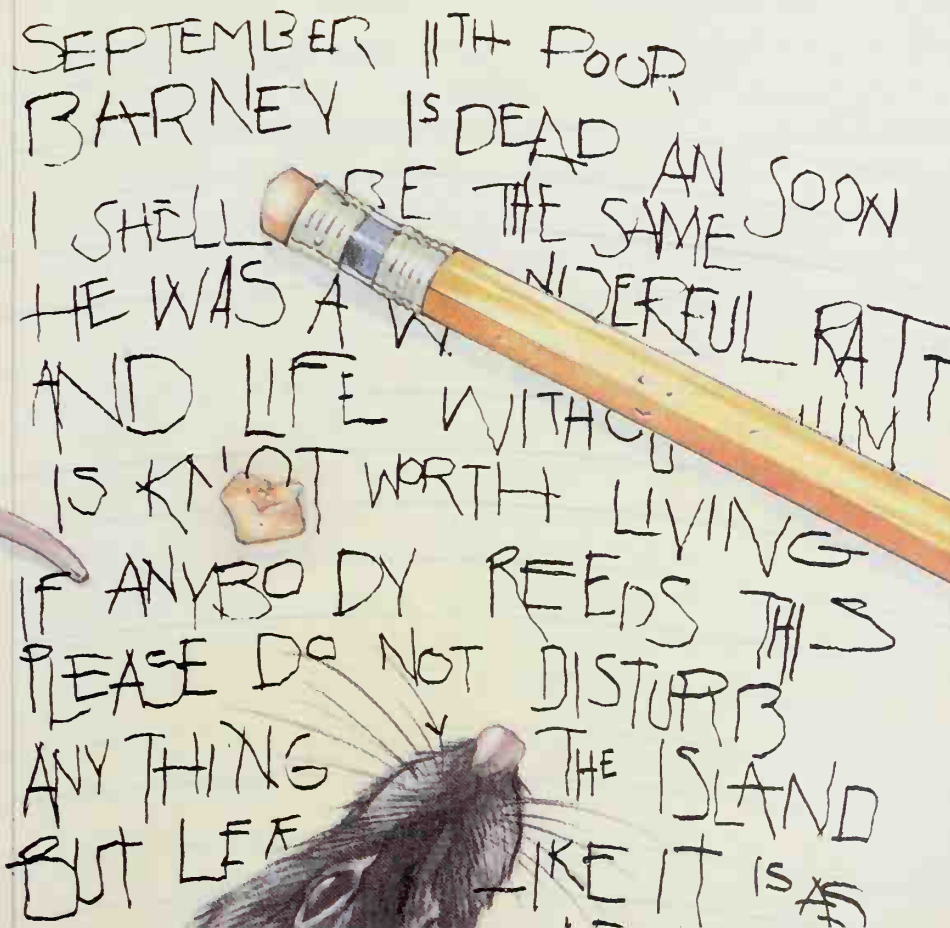 SEPTEMBER 11TH POOR
BARNEY IS DEAD AN SOON
I SHELL BE THE SAME
HE WAS A W NDERFUL RATT
AND LIFE WITHOU HIM
IS KNOT WORTH LIVING
IF ANYBODY REEDS THIS
PLEASE DO NOT DISTURB
ANY THING THE ISLAND
BUT LEA IKE IT IS AS